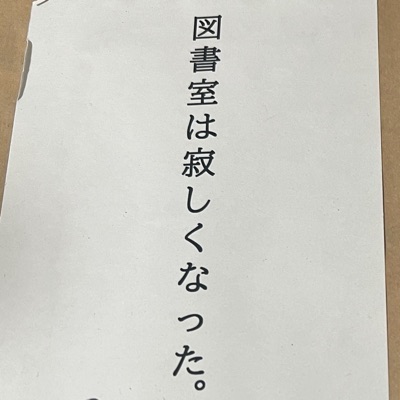 図書室は寂しくなった。